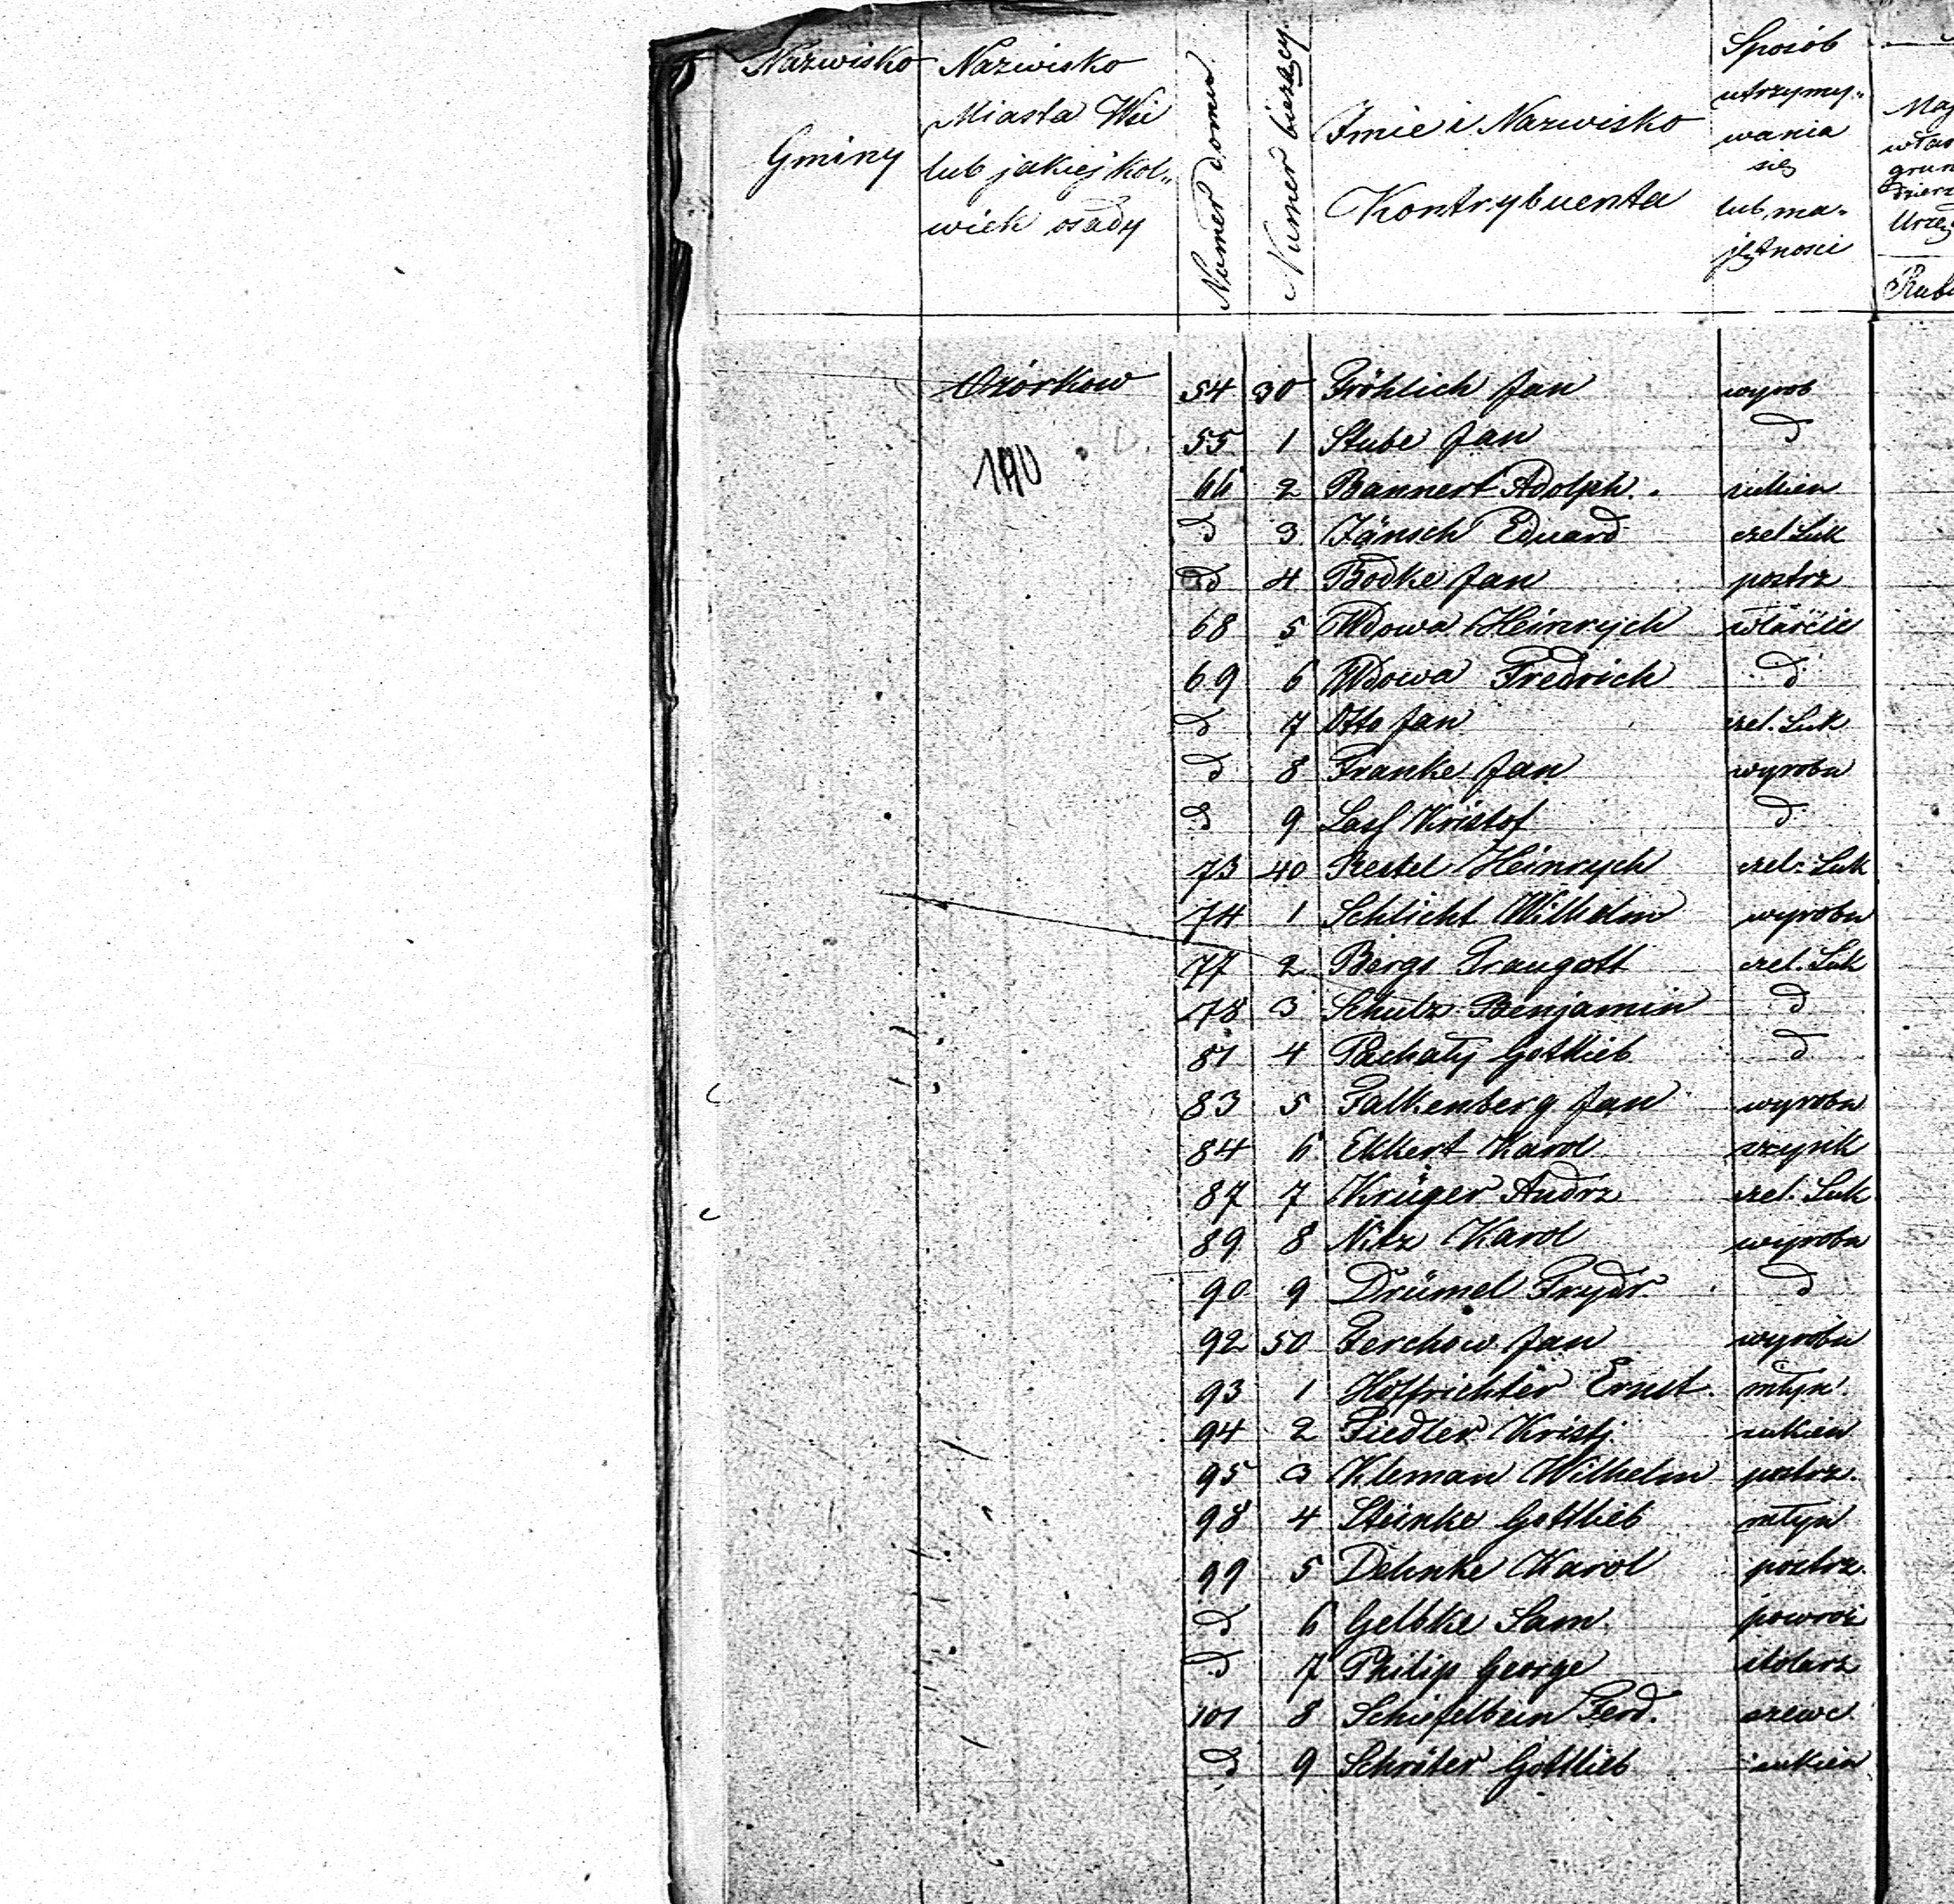 Nazwisko Gminy
Nazwisko Miasta Wsi lub jakiej kol„ wiek osady
Numer domu
Numer bieżący
Imie i Nazwisko Kontrybuenta
Sposób utrzymy„ wania się lub ma„ jętnosci
Ozórkow 54 30 Fröhlich Jan wyrob
190
55 1 Stube Jan d
66 2 Bannert Adolph. sukien
d 3 Jänsch Eduard czel Suk
d 4 Bodke Jan postrz
68 5 Wdowa Heinrych właście
69 6 Wdowa Fredrich d
d 7 Otto Jan czel. Suk
d 8 Franke Jan wyrobn
d 9 Kristof d
73 40 Restel Heinrych czel. Suk
74 1 Schlicht Wilhelm wyrobn
77 2 Bergs Traugott czel. Suk
78 3 Schulz Benjamin d
81 4 Pachaly Gottlieb d
83 5 Falkenberg Jan wyrobn
84 6 Ekkert Karol szynk
87 7 Krüger Andrz czel. Suk
89 8 Nitz Karol wyrobn
90 9 Drümel Frydr. d
92 50 Ferchow Jan wyrobn
93 1 Hoffrichter Ernst. młyn
94 2 Fiedler Kristj. sukien
95 3 Kleman Wilhelm postrz.
98 4 Steinke Gottlieb młyn
99 5 Dehnke Karol postrz.
d 6 Gelbke Sam. powroz
d 7 Philip George stolarz
101 8 Schiefelbein Ferd. szewc
d 9 Schröter Gottlieb sukien